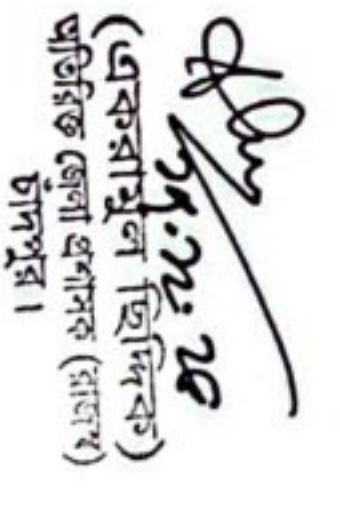 (একরামুল ছিদ্দিক)
অতিরিক্ত জেলা প্রশাসক (রাজস্ব)
চাঁদপুর।